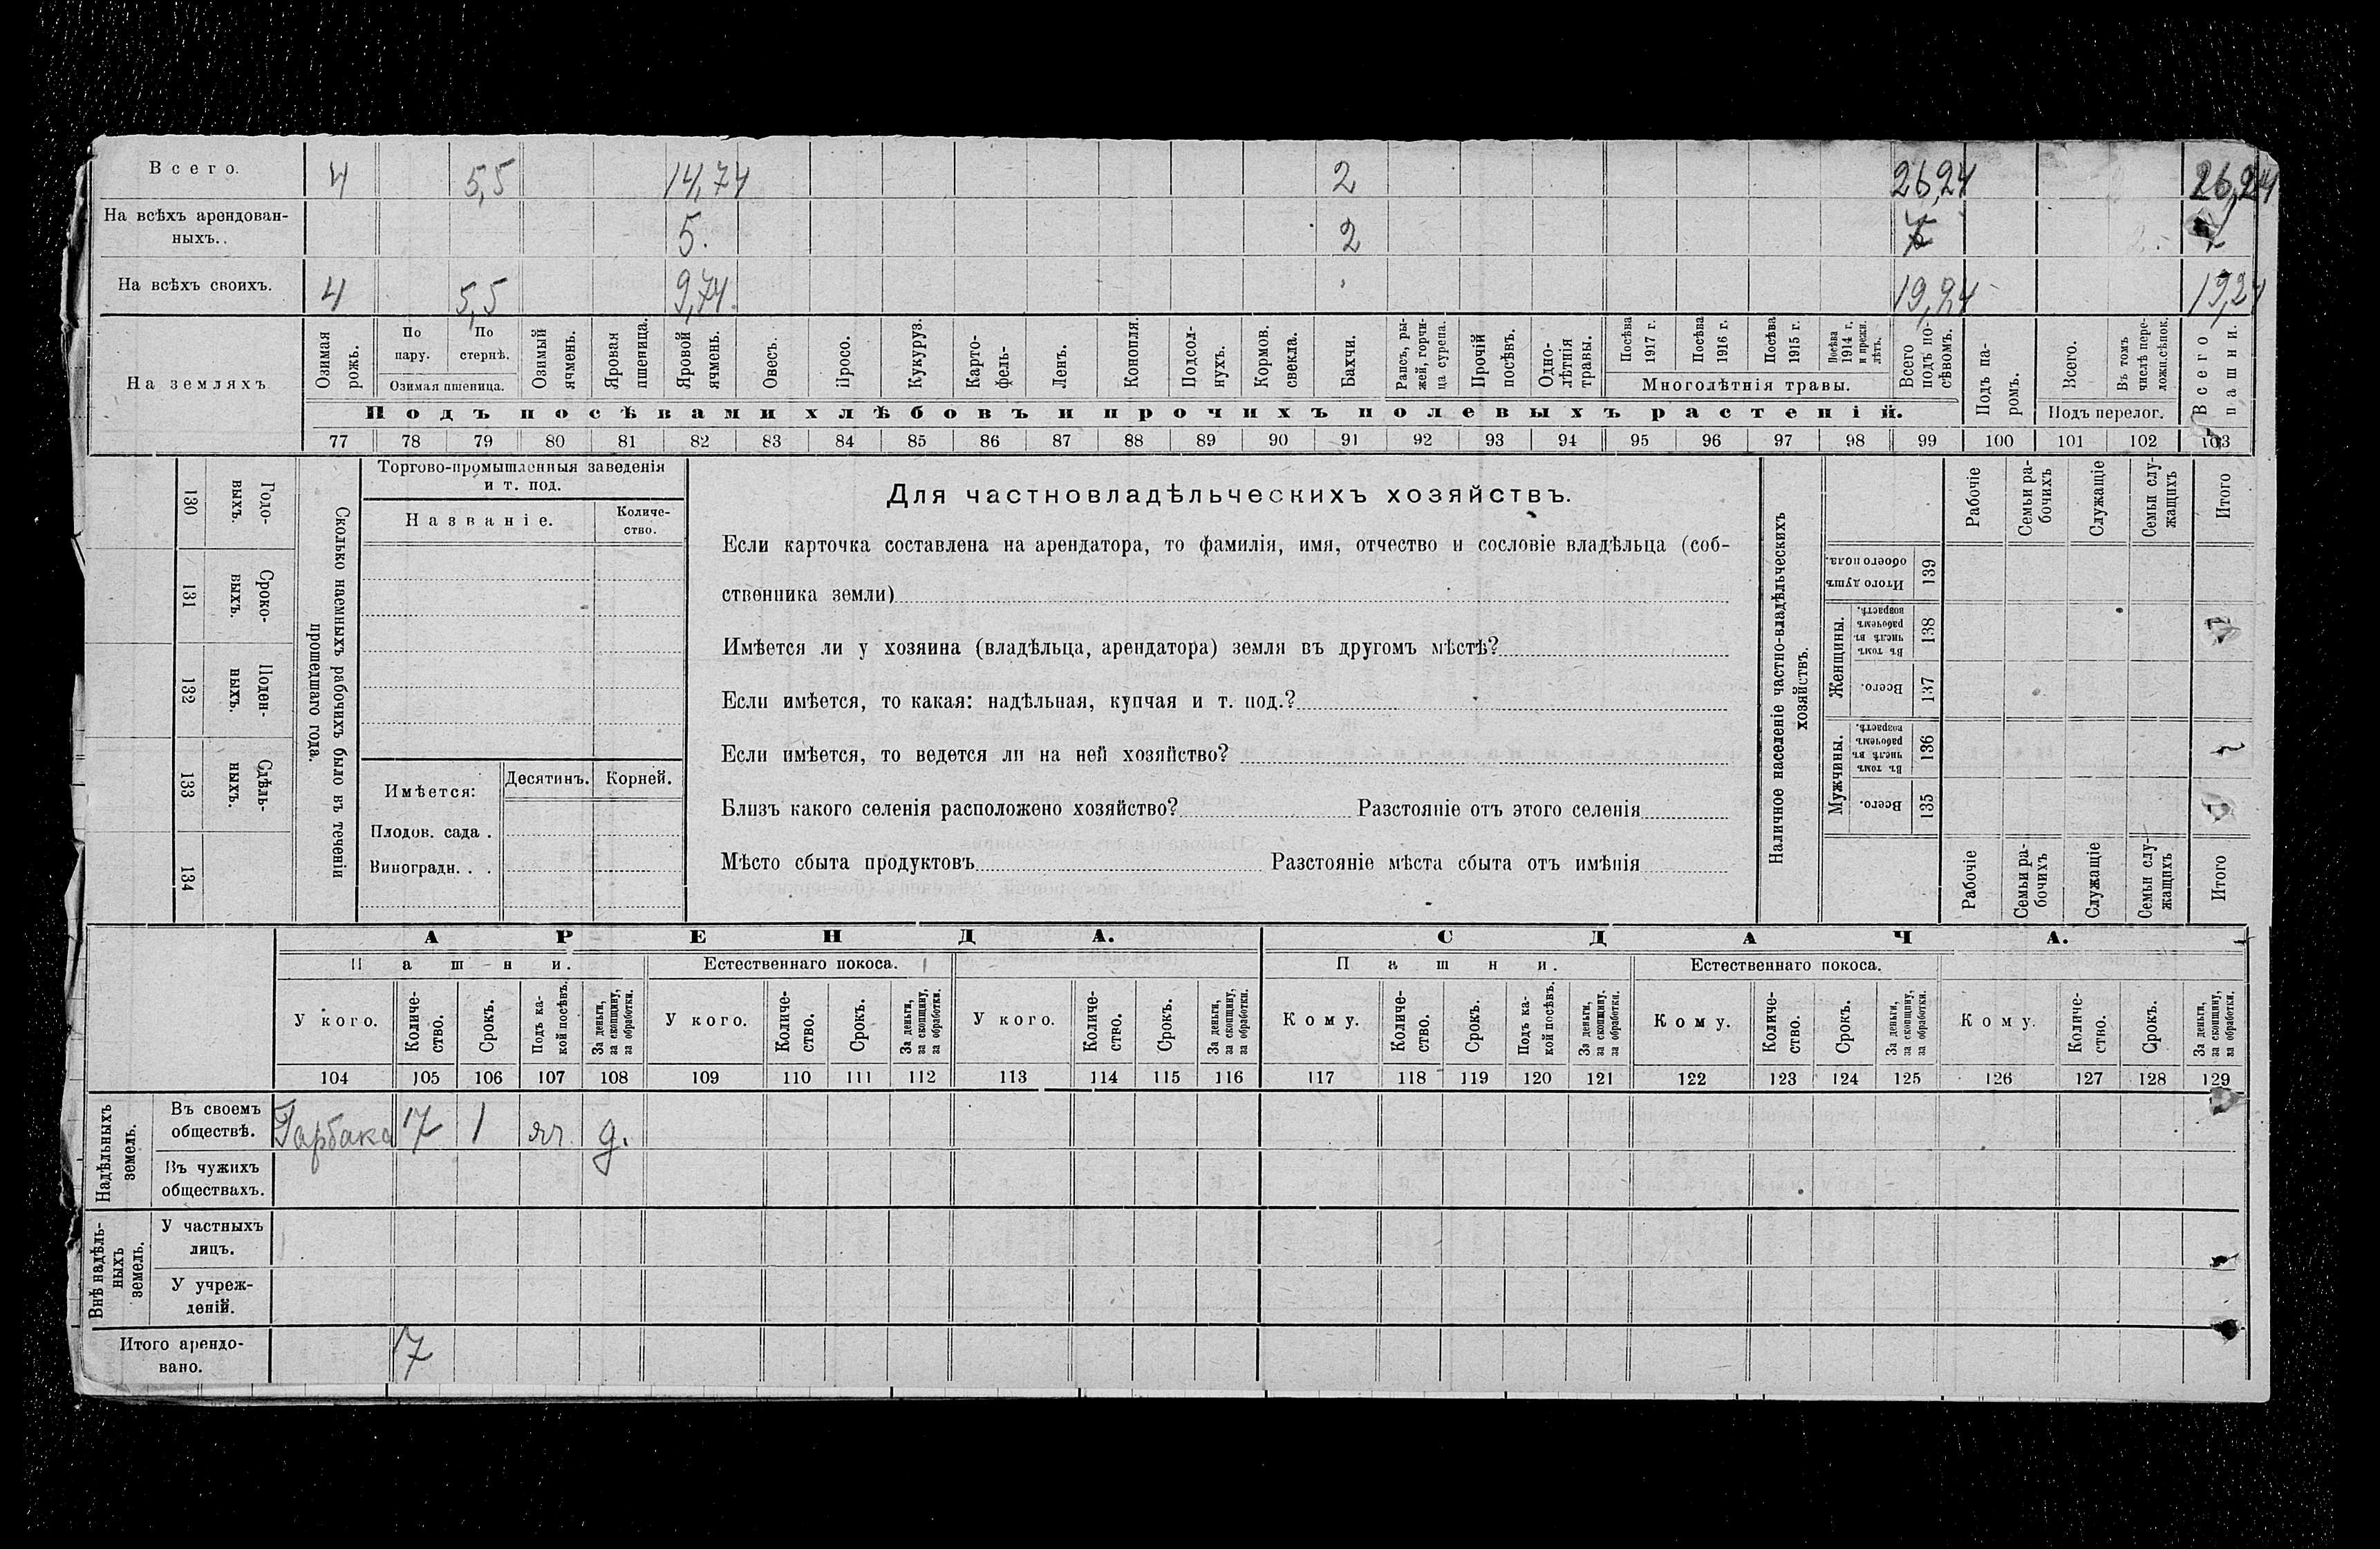 Всего. 4 5,5 14,74 2 26,24 26,24
На всѣхъ арендован-
ныхъ.. 5. 2 7 7
На всѣхъ своихъ. 4 5,5 9,74. 19,24 19,24
На земляхъ
Озимая рожь.
По пару.
По стернѣ.
Озимая пшеница.
Озимый ячмень.
Яровая пшеница.
Яровой ячмень.
Овесъ.
Просо.
Кукуруз.
Карто-
фель-
Ленъ.
Конопля.
Подсол-
нухъ.
Кормов.
свекла.
Бахчи.
Рапсъ, ры-
жей, горчи-
ца сурепа.
Прочій
посѣвъ.
Одно-
лѣтнія
травы.
Посѣва
1917 г.
Посѣва
1916 г.
Посѣва
1915 г.
Посѣва
1914 г.
и прежн.
лѣтъ.
Многолѣтнія травы.
Всего
подъ по-
сѣвомъ.
Подъ па-
ромъ.
Всего.
Въ томъ
числѣ пере-
ложн.сѣнок.
Подъ перелог.
Всего
пашни.
Подъ посѣвами хлѣбовъ и прочихъ полевыхъ растеній.
77 78 79 80 81 82 83 84 85 86 87 88 89 90 91 92 93 94 95 96 97 98 99 100 101 102 103
Годо-
выхъ.
130
Сроко-
выхъ.
131
Поден-
ныхъ.
132
Сдѣль-
ныхъ.
133
134
Сколько наемныхъ рабочихъ было въ теченіи
прошедшаго года.
Торгово-промышленныя заведенія
и т. под.
Названіе.
Количе-
ство.
Имѣется:
Десятинъ.
Корней.
Плодов. сада .
Виноградн. . .
Для частновладѣльческихъ хозяйствъ.
Если карточка составлена на арендатора, то фамилія, имя, отчество и сословіе владѣльца (соб-
ственника земли)
Имѣется ли у хозяина (владѣльца, арендатора) земля въ другомъ мѣстѣ?
Если имѣется, то какая: надѣльная, купчая и т. под.?
Если имѣется, то ведется ли на ней хозяйство?
Близъ какого селенія расположено хозяйство? Разстояніе отъ этого селенія
Мѣсто сбыта продуктовъ Разстояніе мѣста сбыта отъ имѣнія
Наличное населеніе частно-владѣльческихъ
хозяйствъ.
Рабочіе
Семьи ра-
бочихъ
Служащіе
Семьи слу-
жащихъ
Итого
Итого душъ
обоего пола.
139
Женщины.
Въ томъ
числѣ въ
рабочемъ
возрастѣ.
138
Всего.
137
Мужчины.
Въ томъ
числѣ въ
рабочемъ
возрастѣ.
136
Всего.
135
Рабочіе
Семьи ра-
бочихъ
Служащіе
Семьи слу-
жащихъ
Итого
АРЕНДА. СДАЧА.
Пашни. Естественнаго покоса. Пашни. Естественнаго покоса.
У кого.
Количе-
ство.
Срокъ.
Подъ ка-
кой посѣвъ.
За деньги,
за скопщину,
за обработки.
У кого.
Количе-
ство.
Срокъ.
За деньги,
за скопщину,
за обработки.
У кого.
Количе-
ство.
Срокъ.
За деньги,
за скопщину,
за обработки.
Кому.
Количе-
ство.
Срокъ.
Подъ ка-
кой посѣвъ.
За деньги,
за скопщину,
за обработки.
Кому.
Количе-
ство.
Срокъ.
За деньги,
за скопщину,
за обработки.
Кому.
Количе-
ство.
Срокъ.
За деньги,
за скопщину,
за обработки.
104 105 106 107 108 109 110 111 112 113 114 115 116 117 118 119 120 121 122 123 124 125 126 127 128 129
Надѣльныхъ
земель.
Въ своемъ
обществѣ. 7 1 яч. д.
Въ чужихъ
обществахъ.
Внѣ надѣль-
ныхъ
земель.
У частныхъ
лицъ.
У учреж-
деній.
Итого арендо-
вано. 7